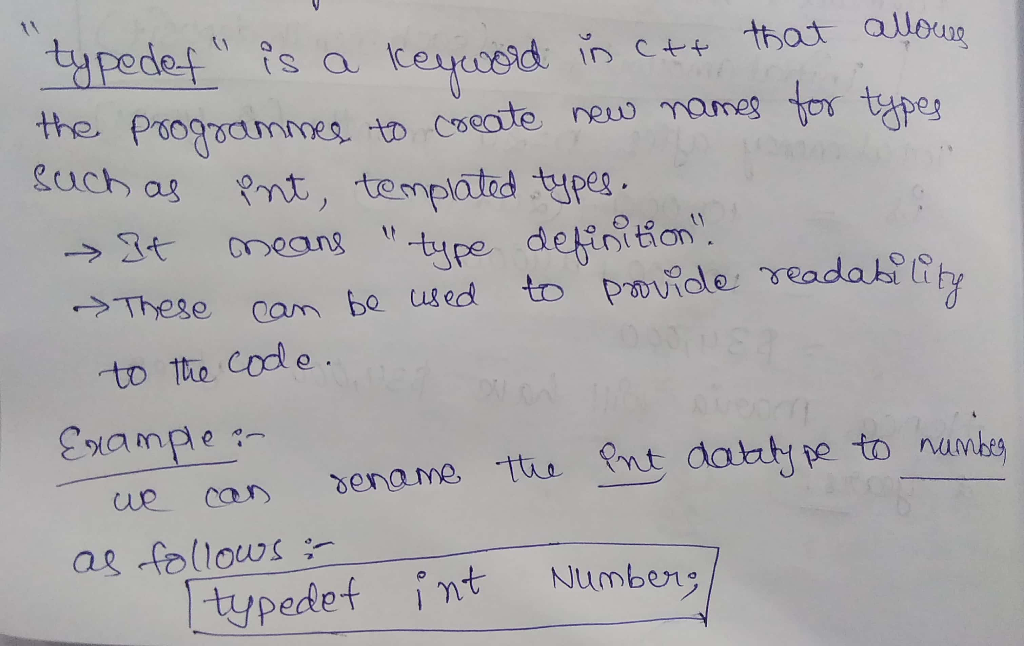 "typedef" is a keyword in C++ that allows
the programmer to create new names for types
such as int, templated types.
→ It means "type definition".
→ These can be used to provide readability
to the code.
Example :-
we can rename the int datatype to number
as follows :-
typedef int Number;